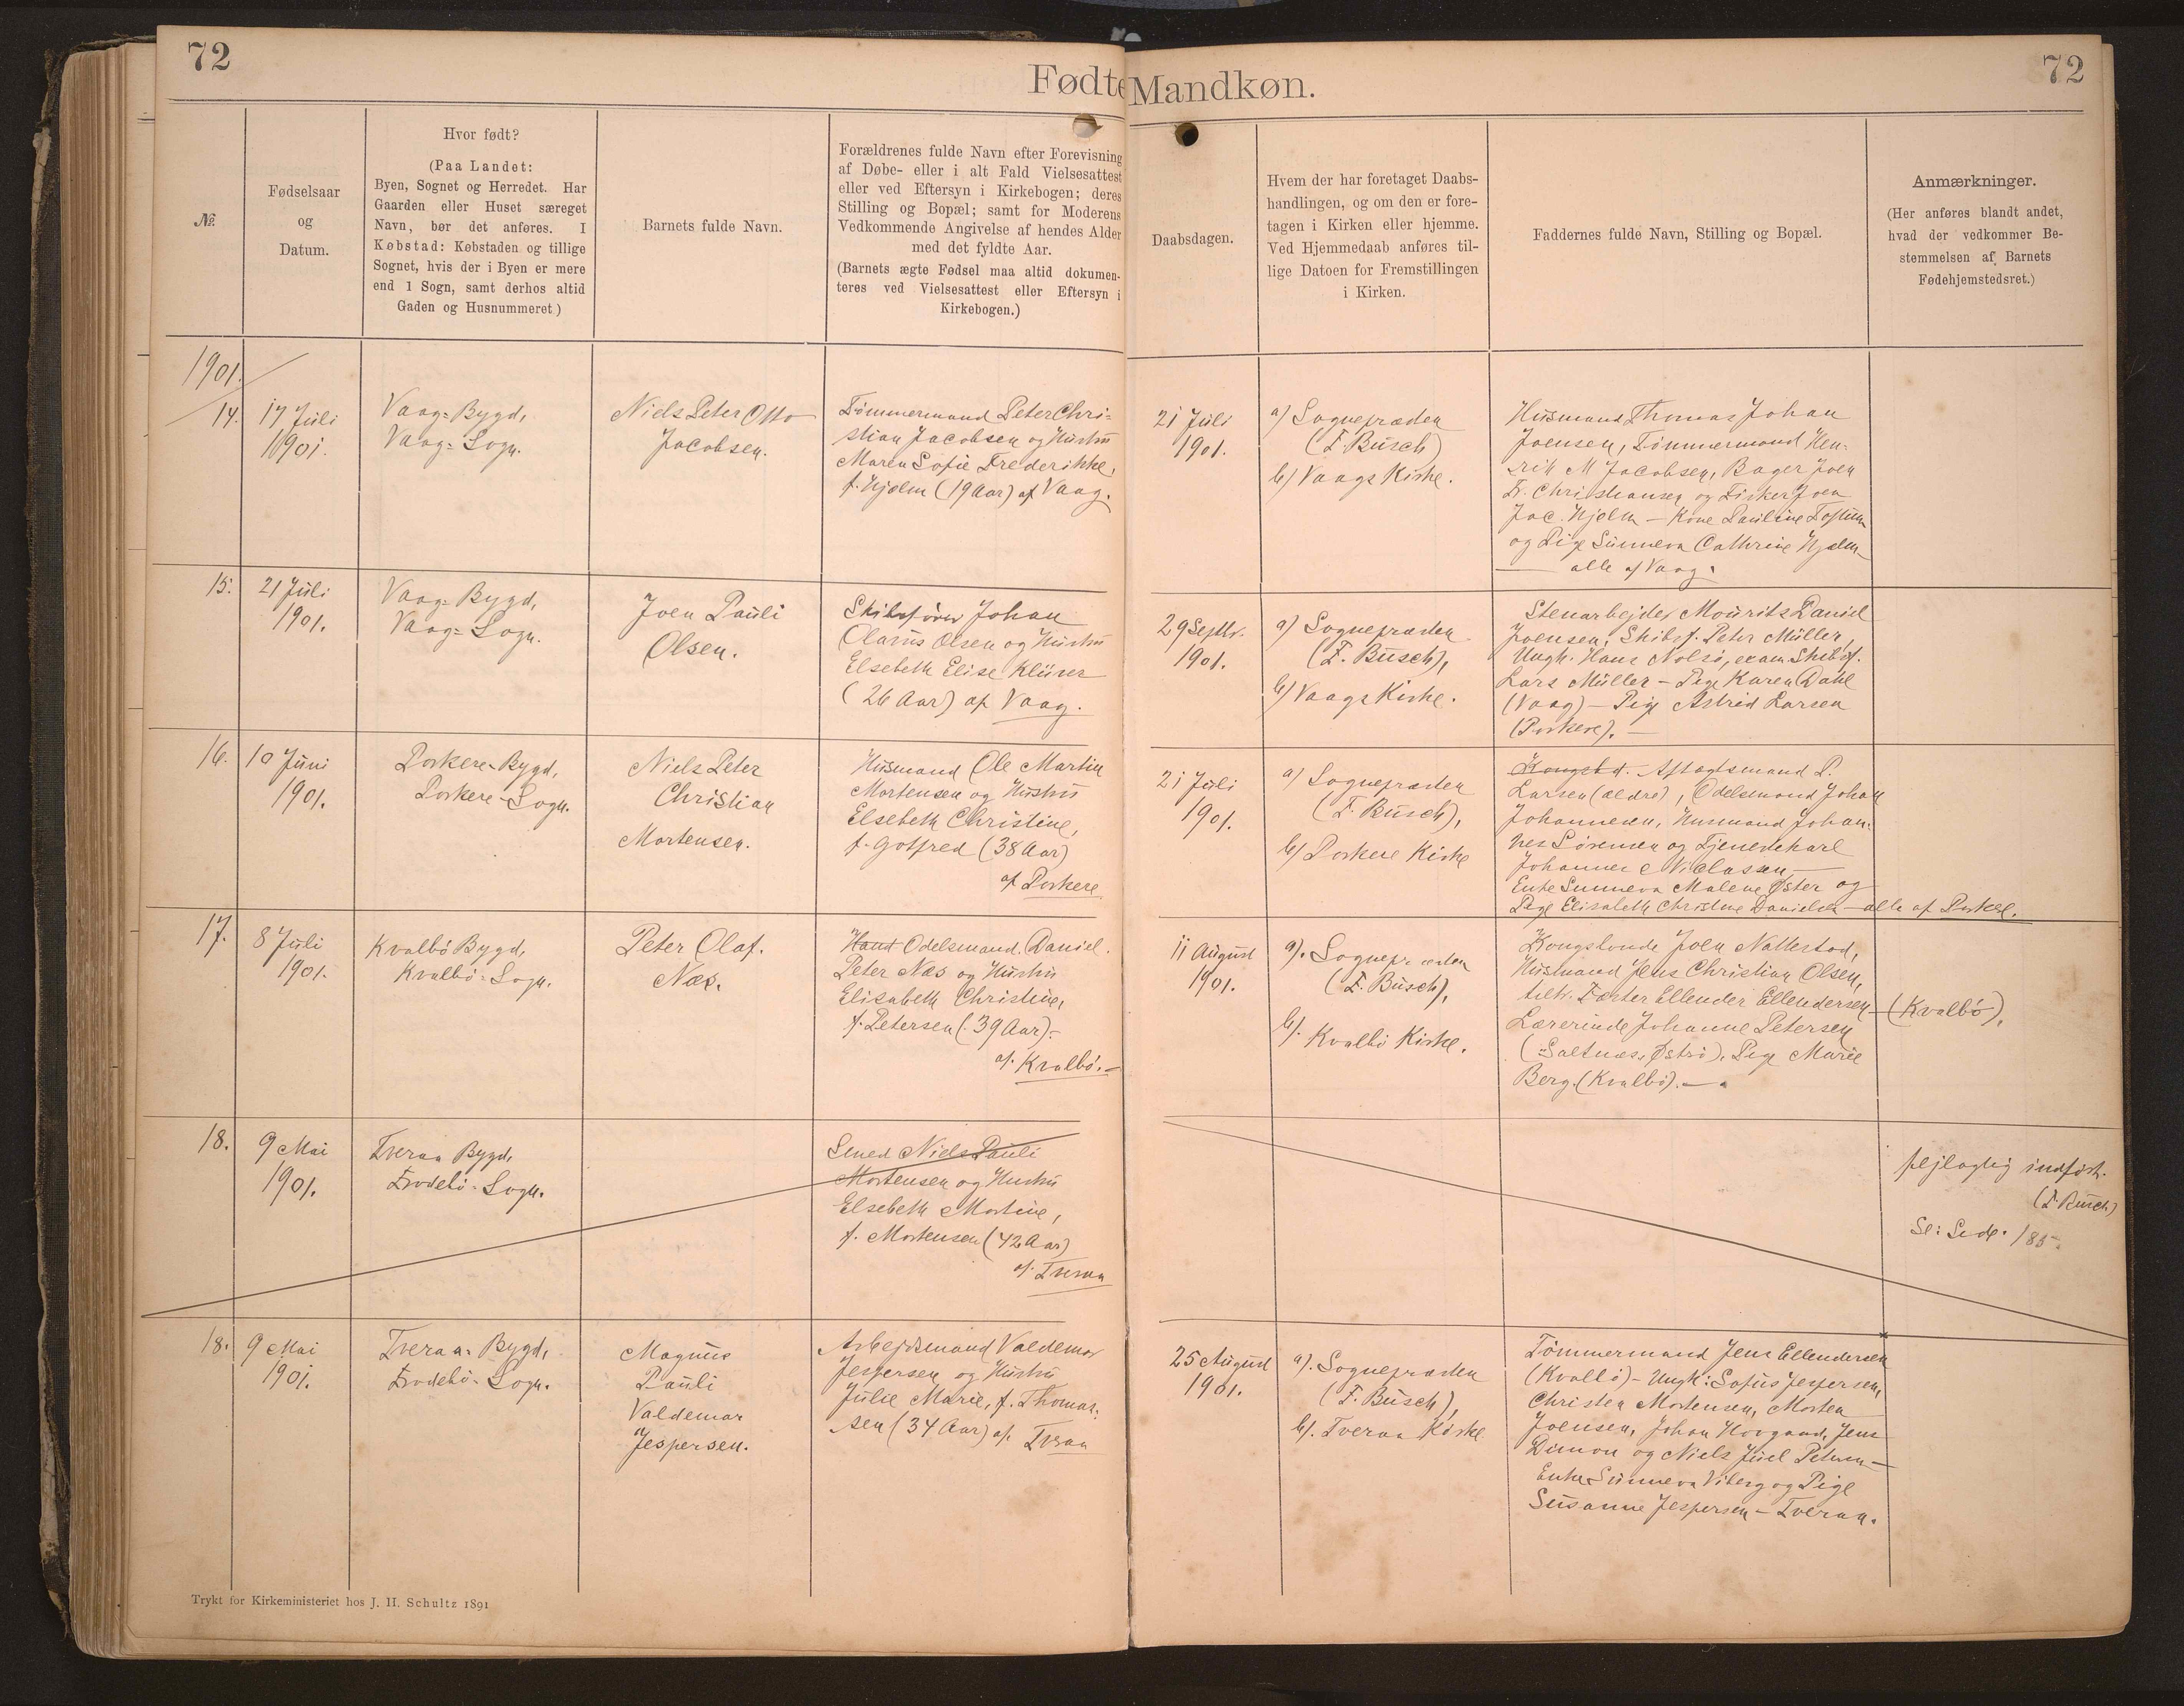 72
Fødte Mandkøn.
72
№
Fødselsaar
og
Datum.
Hvor født?
(Paa Landet:
Byen, Sognet og Herredet. Har
Gaarden eller Huset særeget
Navn, bør det anføres. I
Købstad: Købstaden og tillige
Sognet, hvis der i Byen er mere
end 1 Sogn, samt derhos altid
Gaden og Husnummeret)
Barnets fulde Navn.
Forældrenes fulde Navn efter Forevisning
af Døbe- eller i alt Fald Vielsesattest
eller ved Eftersyn i Kirkebogen; deres
Stilling og Bopæl; samt for Moderens
Vedkommende Angivelse af hendes Alder
med det fyldte Aar.
(Barnets ægte Fødsel maa altid dokumen-
teres ved Vielsesattest eller Eftersyn i
Kirkebogen.)
Daabsdagen.
Hvem der har foretaget Daabs-
handlingen, og om den er fore-
tagen i Kirken eller hjemme.
Ved Hjemmedaab anføres til-
lige Datoen for Fremstillingen
i Kirken.
Faddernes fulde Navn, Stilling og Bopæl.
Anmærkninger.
(Her anføres blandt andet,
hvad der vedkommer Be-
stemmelsen af Barnets
Fødehjemstedsret.)
1901.
14.
17 Juli
1901.
Vaag=Bygd,
Vaag=Sogn.
Niels Peter Otto
Jacobsen.
Tømmermand Peter Chri=
stian Jacobsen og Hustru
Maren Sofie Frederikke,
f. Hjelm (19 Aar) af Vaag.
21 Juli
1901.
a) Sognepræsten
(F. Busch)
b) Vaags Kirke.
Husmand Thomas Johan
Joensen, Tømmermand Hen=
rik M Jacobsen, Bager Joen
Fr. Christiansen og Fisker Joen
Jac. Hjelm – Kone Pauline
og Pige Sunneva Cathrine Hjelm
— alle af Vaag.
15.
21 Juli
1901.
Vaag=Bygd,
Vaag=Sogn.
Joen Pauli
Olsen.
Skibsfører Johan
Olarus Olsen og Hustru
Elsebeth Elise Klüver
(26 Aar) af Vaag.
29 Septbr.
1901.
a) Sognepræsten
(F. Busch),
b) Vaags Kirke.
Stenarbejder Mourits Daniel
Joensen, Skibsf. Peter Müller,
Ungk. Hans Nolsø, exam. Skibsf.
Lars Müller – Pige Karen Dahl
(Vaag) – Pige Astrid Larsen
(Porkere). –
16.
10 Juni
1901.
Porkere=Bygd,
Porkere=Sogn.
Niels Peter
Christian
Mortensen.
Husmand Ole Martin
Mortensen og Hustru
Elsebeth Christine,
f. Gotfred (38 Aar)
af Porkere
21 Juli
1901.
a) Sognepræsten
(F. Busch),
b) Porkere Kirke
Aftægtsmand P.
Larsen (ældre), Odelsmand Johan
Johannesen, Husmand Johan=
nes Sørensen og Tjenestekarl
Johannes Niclasen –
Enke Sunneva Malene Øster og
Pige Elisabeth Christine Danielsen – alle af Porkere.
17.
8 Juli
1901.
Kvalbø Bygd,
Kvalbø=Sogn.
Peter Olaf
Næs.
Odelsmand Daniel
Peter Næs og Hustru
Elisabeth Christine,
f. Petersen (39 Aar) –
af Kvalbø. –
11 August
1901.
a). Sognepræsten
(F. Busch),
b). Kvalbø Kirke.
Kongsbonde Joen Nattestad,
Husmand Jens Christian Olsen,
Fæster Ellender Ellendersen – (Kvalbø),
Lærerinde Johanne Petersen
(Saltnæs, Østrø), Pige Marie
Berg (Kvalbø). –
18.
9 Mai
1901.
Tveraa Bygd,
Frodebø=Sogn.
Smed Niels Pauli
Mortensen og Hustru
Elsebeth Mortine,
f. Mortensen (42 Aar)
af Tveraa
fejlagtig indført.
(F. Busch)
Se: Side: 185.
18.
9 Mai
1901.
Tveraa=Bygd,
Frodebø=Sogn.
Magnus
Pauli
Valdemar
Jespersen.
Arbejdsmand Valdemar
Jespersen og Hustru
Julie Marie, f. Thomas=
sen (34 Aar) af Tveraa
25 August
1901.
a). Sognepræsten
(F. Busch),
b). Tveraa Kirke
Tømmermand Jens Ellendersen
(Kvalbø) – Ungk: Sofus Jespersen,
Christen Mortensen, Morten
Joensen, Johan Hovgaard, Jens
Dimon og Niels Juel Petersen –
Enke Sunneva Viberg og Pige
Susanne Jespersen – Tveraa.
Trykt for Kirkeministeriet hos J. H. Schultz 1891